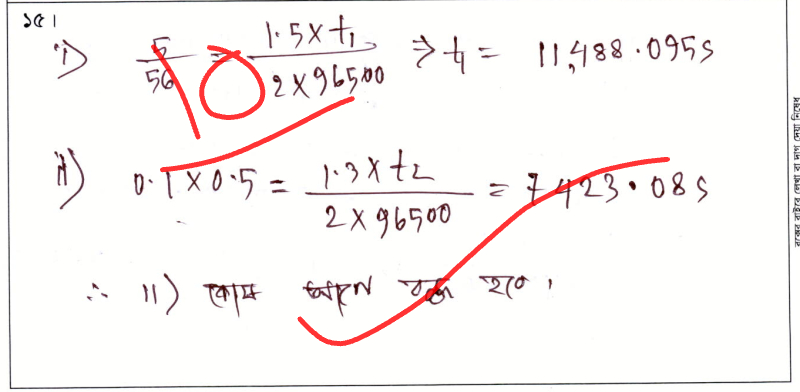 ১৫।
i) 5/56 = 1.5×t₁/2×96500 ⇒ t₁ = 11,488.095s
ii) 0.1×0.5 = 1.3×t₂/2×96500 = 7423.08s
∴ ii) কোষ আগে বন্ধ হবে।
বক্সের বাইরে লেখা বা দাগ দেয়া নিষেধ